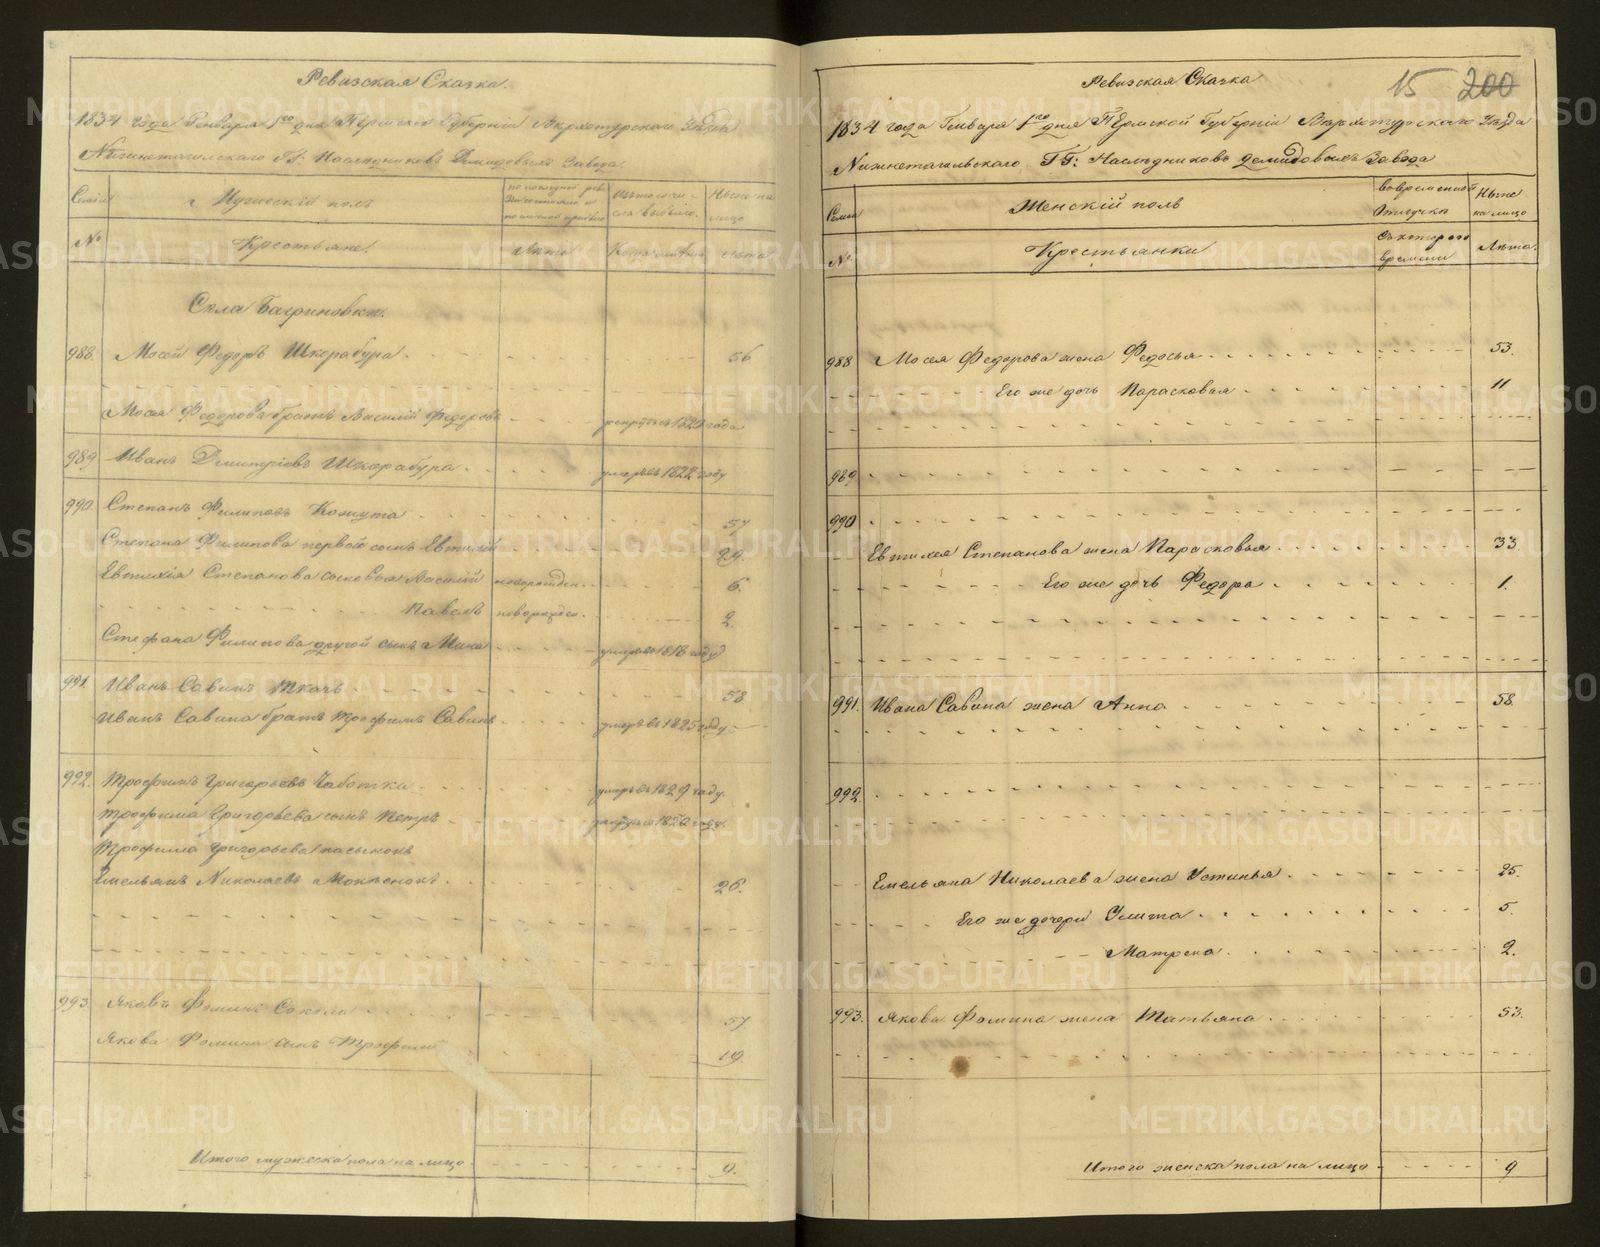 Ревизская Сказка.
1834 года Генваря 1го дня Пермской Губерніи Верхотурскаго Уѣзда
Нижнетагильскаго ГГ: Наслѣдниковъ Демидовыхъ Завода.
Семьи
Мужескій полъ
Ныне на лицо
№
Крестьяне
Лѣта
Лѣта
Села Багриновки.
988. Мосей Федоръ Шкорабура. 56
Мосея Федорова братъ Василій Федоровъ рекрутъ съ 1829 года
989 Иванъ Дмитріевъ Шкорабура. умеръ въ 1822 году
990. Степанъ Филиповъ Кожута 57
Степана Филипова первой сынъ Евтихій 29.
Евтихія Степанова сыновья Василій новорожден. 6.
Павелъ новорожден. 2.
Стефана Филипова другой сынъ Мина умеръ въ 1818 году
991 Иванъ Савинъ Ткачъ 58
Ивана Савина братъ Трофимъ Савинъ умеръ въ 1825 году
992. Трофимъ Григорьевъ Чаботка умеръ въ 1829 году.
Трофима Григорьева сынъ Петръ 1828 году.
Трофима Григорьева пасынокъ
Емельянъ Николаевъ 26.
993. Яковъ Фоминъ 57
Якова Фомина сынъ Трофимъ 19.
Итого мужеска пола на лицо 9.
Ревизская Сказка
15 200
1834 года Генваря 1го дня Пермской Губерніи Верхотурскаго Уѣзда
Нижнетагильскаго ГГ: Наслѣдниковъ Демидовыхъ Завода
Семьи
Женскій полъ
во временной отлучкѣ
Ныне на лицо
№
Крестьянки
съ котораго времени
Лѣта.
988 Мосея Федорова жена Федосья 53.
Его же дочь Парасковья 11
989
990
Евтихея Степанова жена Парасковья 33.
Его же дочь Федора 1.
991. Ивана Савина жена Анна 58.
992
Емельяна Николаева жена Устинья 25.
Его же дочери Улита 5.
Матрена 2.
993. Якова Фомина жена Татьяна 53.
Итого женска пола на лицо 9
METRIKI.GASO-URAL.RU